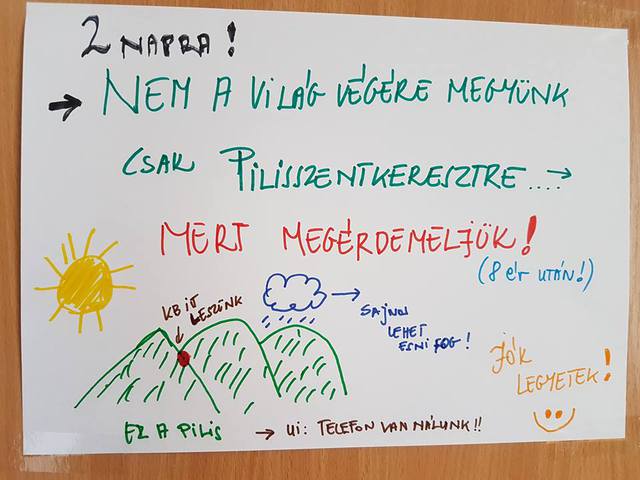 2 NAPRA!
→ NEM A VILÁG VÉGÉRE MEGYÜNK
CSAK PILISSZENTKERESZTRE....→
MERT MEGÉRDEMELJÜK!
(8 ÉV UTÁN!)
KB ITT LESZÜNK
→ SAJNOS
LEHET
ESNI FOG!
JÓK
LEGYETEK!
EZ A PILIS → UI: TELEFON VAN NÁLUNK!!